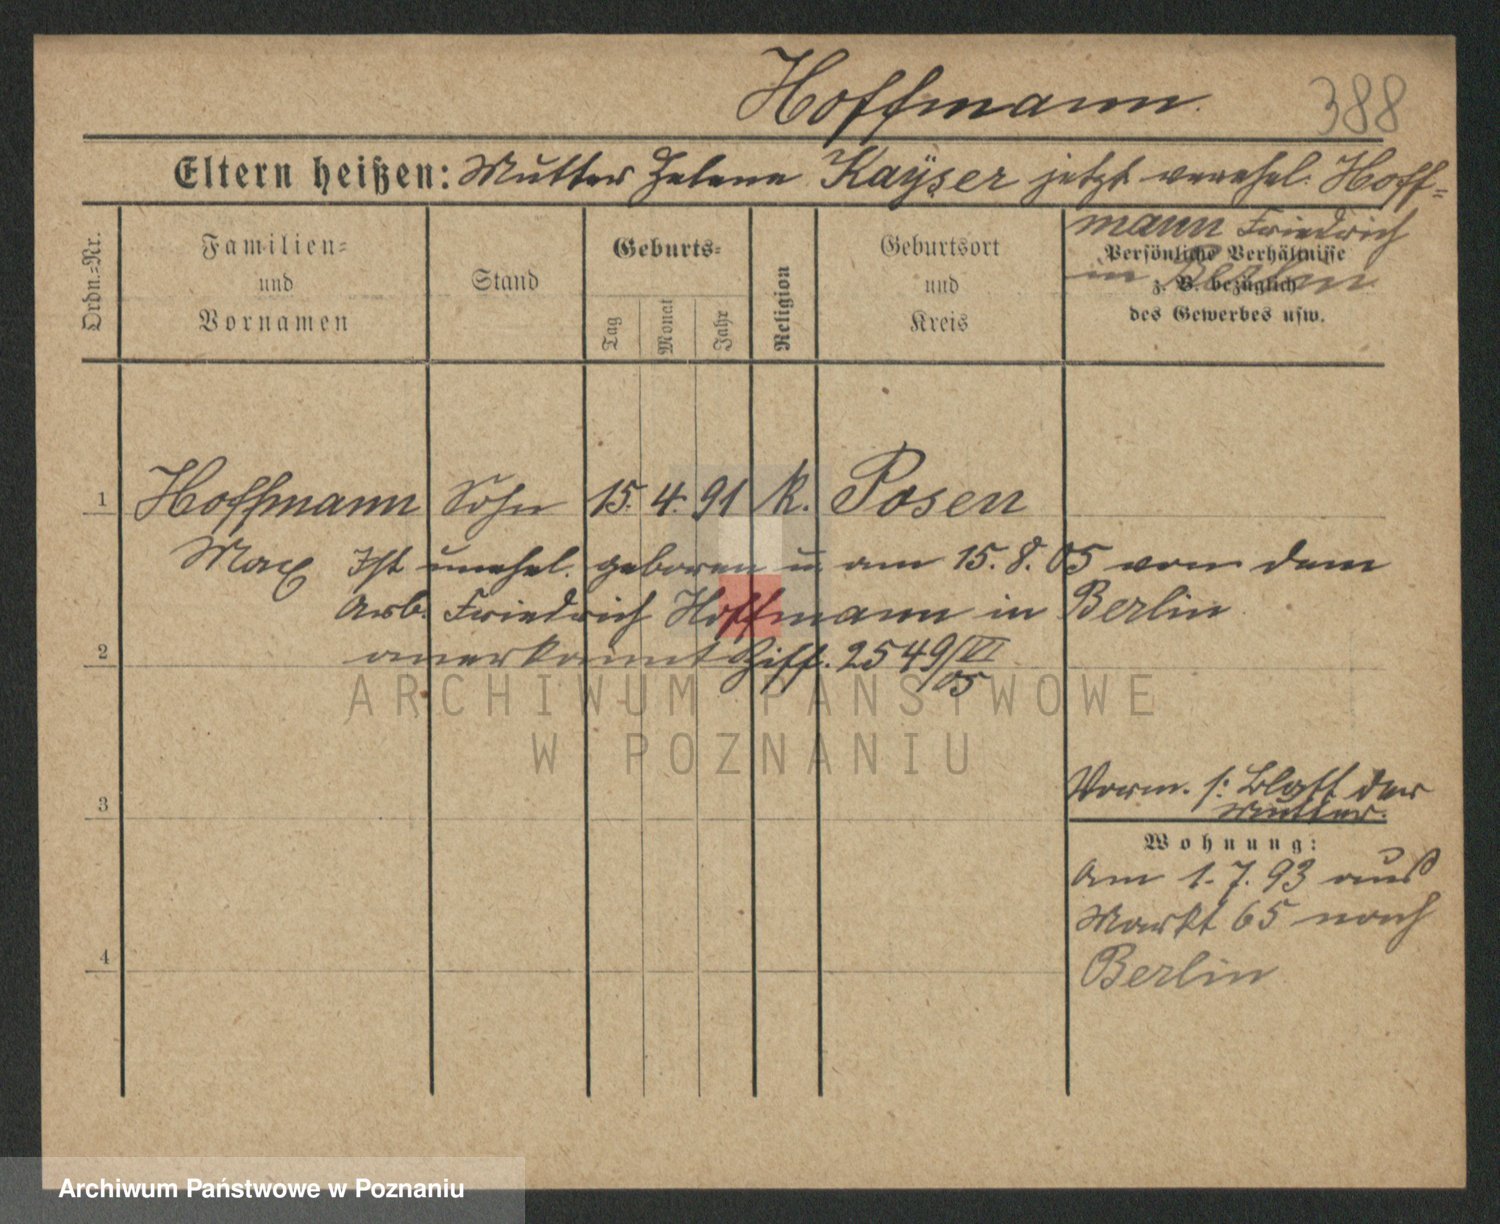 Hoffmann.
388
Eltern heißen: Mutter Helene Kayser jetzt verehel. Hoff=
mann Friedrich
in Berlin
Ordn.=Nr.
Familien=
und
Vornamen
Stand
Geburts=
Tag
Monat
Jahr
Religion
Geburtsort
und
Kreis
Persönliche Verhältnisse
z. B. bezüglich
des Gewerbes usw.
1 Hoffmann Sohn 15. 4. 91 k. Posen
Max Ist unehel. geboren u. am 15. 8. 05 von dem
Arb. Friedrich Hoffmann in Berlin
2 anerkannt Ziff. 2549/VI
05
ARCHIWUM PAŃSTWOWE
W POZNANIU
Vorm. s: Blatt der
Mutter.
3
Wohnung:
Am 1. 7. 93 aus
Markt 65 nach
4 Berlin
Archiwum Państwowe w Poznaniu